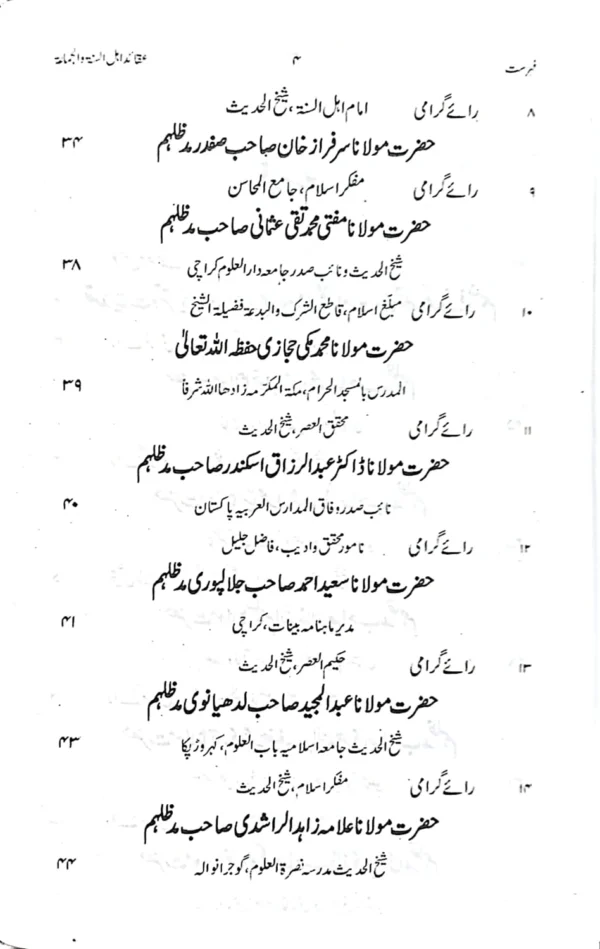 فہرست ۴ عقائد اہل السنۃ والجماعۃ
۸ رائے گرامی امام اہل السنۃ، شیخ الحدیث
حضرت مولانا سرفراز خان صاحب صفدر مدظلہم ۳۴
۹ رائے گرامی مفکر اسلام، جامع المحاسن
حضرت مولانا مفتی محمد تقی عثمانی صاحب مدظلہم
شیخ الحدیث و نائب صدر جامعہ دارالعلوم کراچی ۳۸
۱۰ رائے گرامی مبلغ اسلام، قاطع الشرک والبدعۃ فضیلۃ الشیخ
حضرت مولانا محمد مکی حجازی حفظہ اللہ تعالیٰ
المدرس بالمسجد الحرام، مکۃ المکرمہ زادھا اللہ شرفاً ۳۹
۱۱ رائے گرامی محقق العصر، شیخ الحدیث
حضرت مولانا ڈاکٹر عبدالرزاق اسکندر صاحب مدظلہم
نائب صدر وفاق المدارس العربیہ پاکستان ۴۰
۱۲ رائے گرامی نامور محقق وادیب، فاضل جلیل
حضرت مولانا سعید احمد صاحب جلالپوری مدظلہم
مدیر ماہنامہ بینات، کراچی ۴۱
۱۳ رائے گرامی حکیم العصر، شیخ الحدیث
حضرت مولانا عبدالمجید صاحب لدھیانوی مدظلہم
شیخ الحدیث جامعہ اسلامیہ باب العلوم، کہروڑپکا ۴۳
۱۴ رائے گرامی مفکر اسلام، شیخ الحدیث
حضرت مولانا علامہ زاہد الراشدی صاحب مدظلہم
شیخ الحدیث مدرسہ نصرۃ العلوم، گوجرانوالہ ۴۴